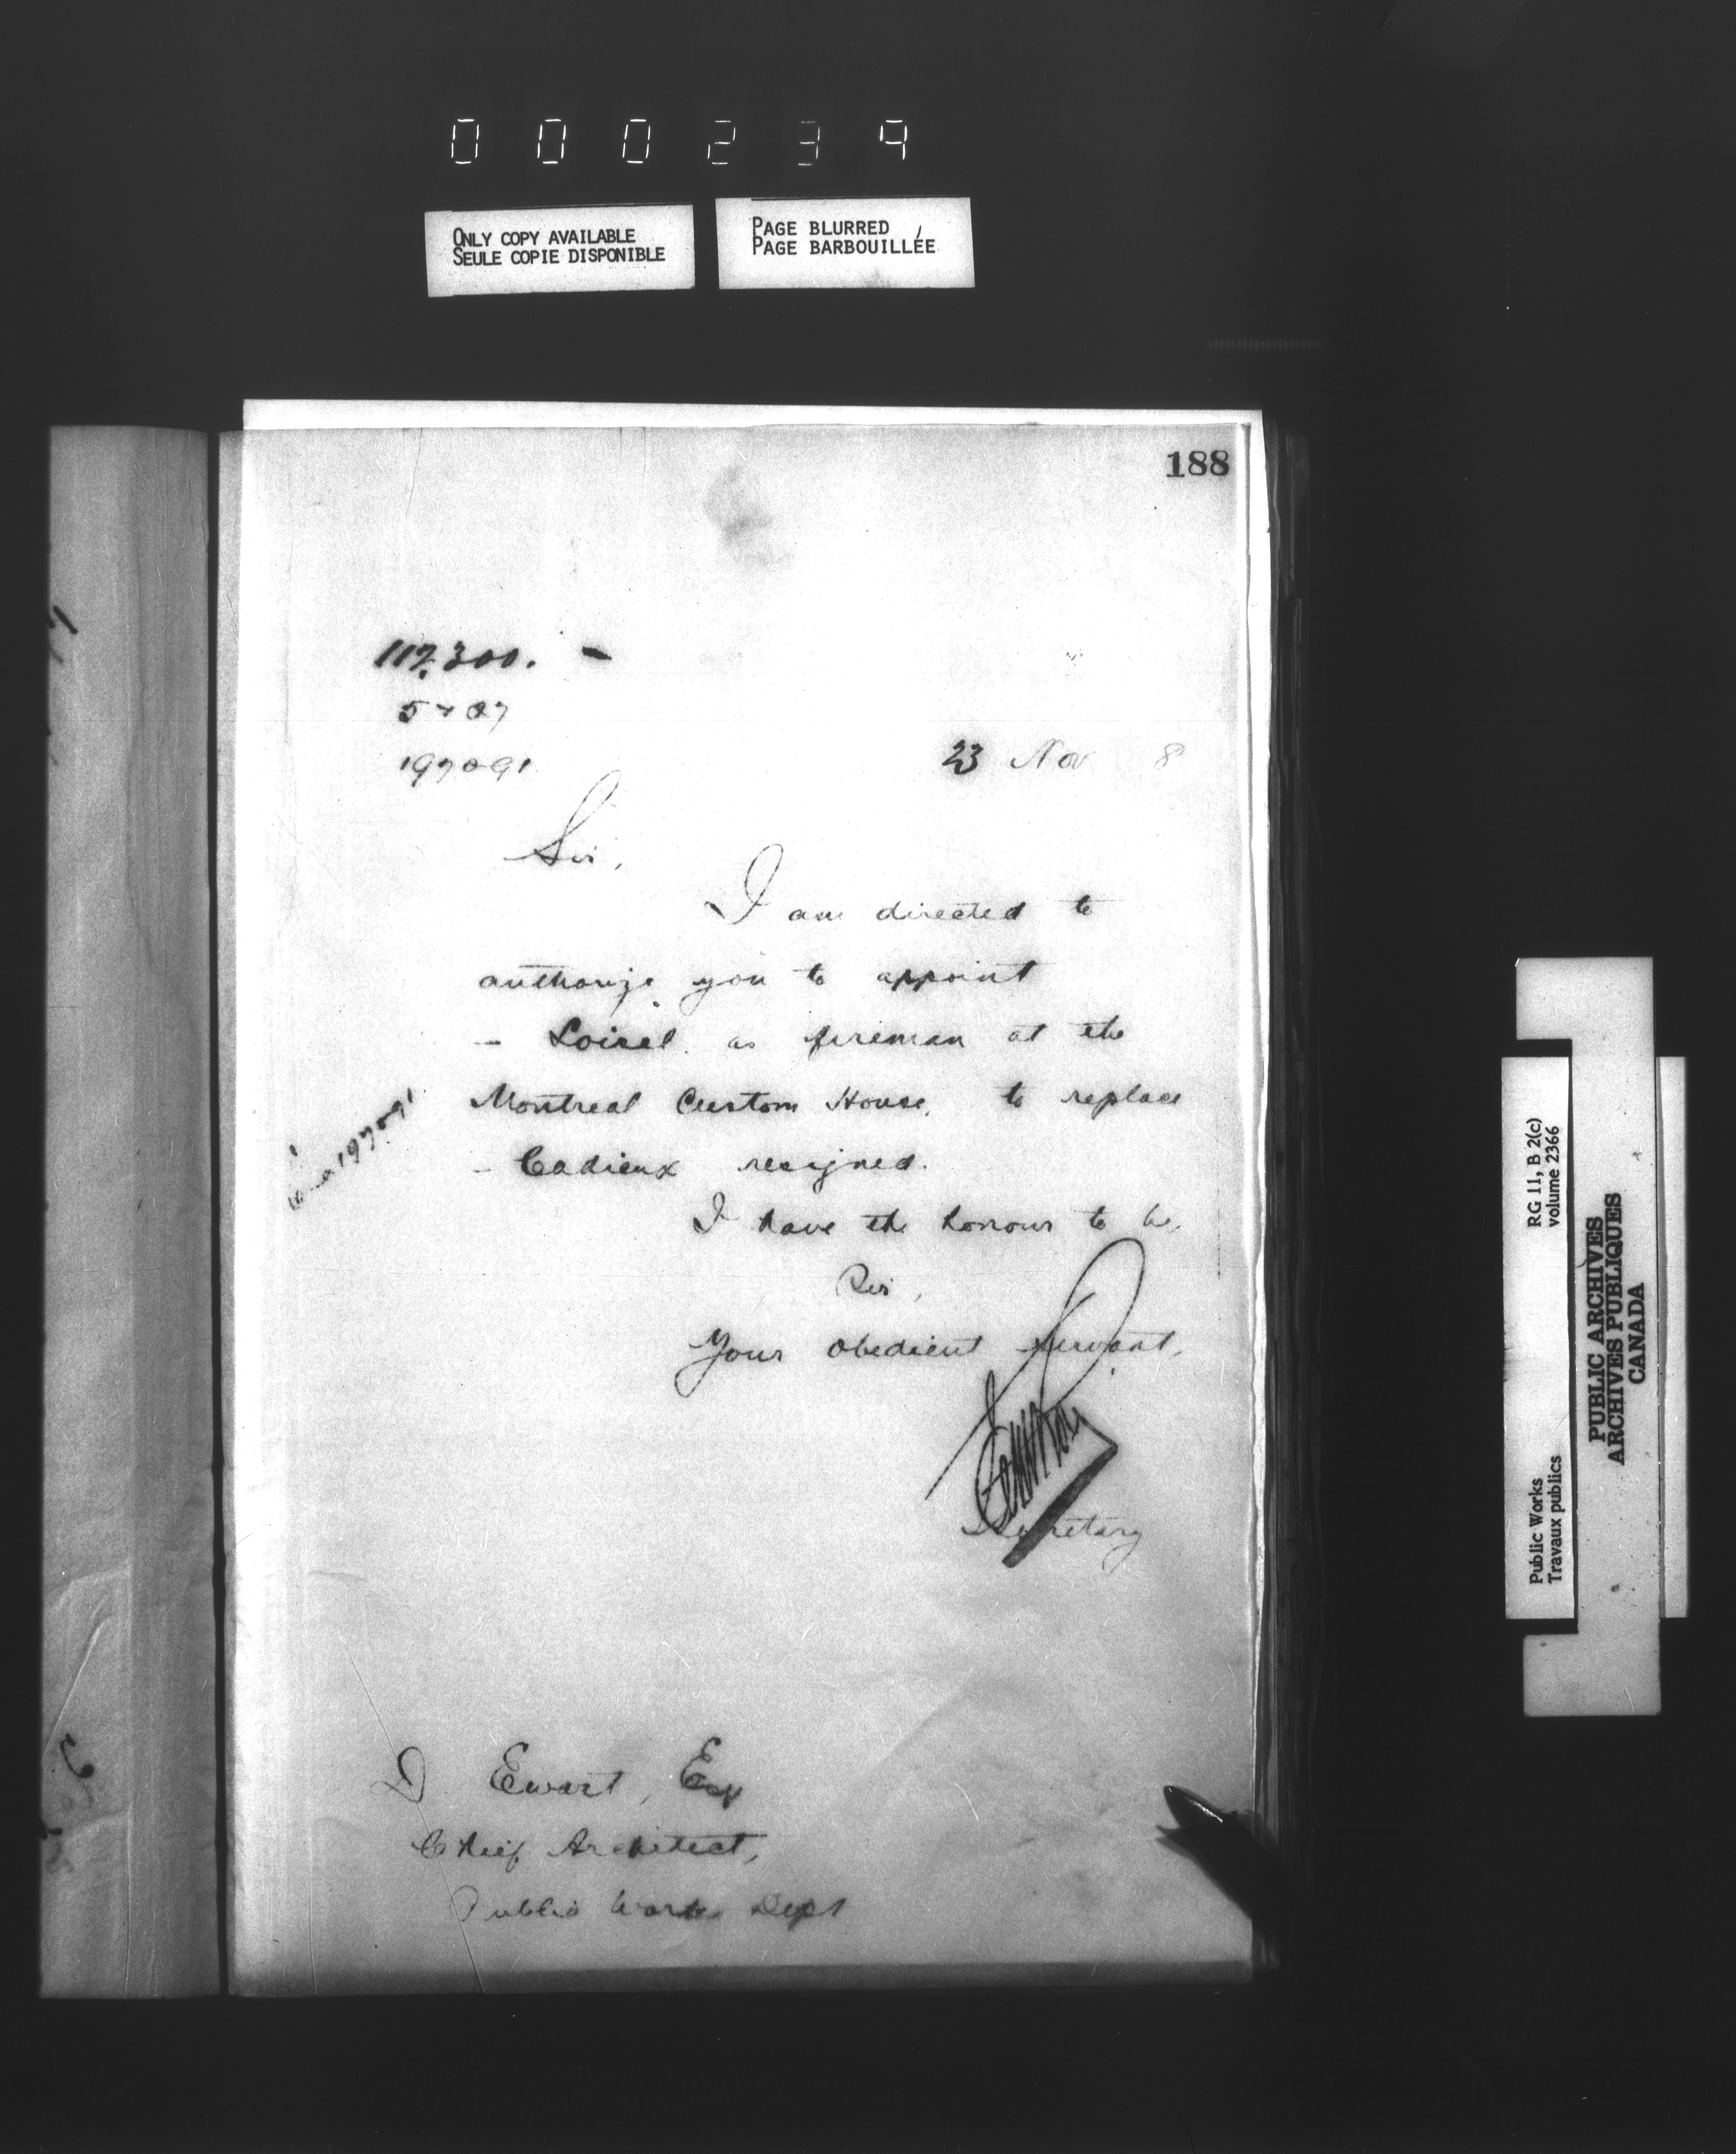 000239
ONLY COPY AVAILABLE
SEULE COPIE DISPONIBLE
PAGE BLURRED
PAGE BARBOUILLÉE
188
117,300. -
197091
23 Nov 8
Sir,
I am directed to
authorize you to appoint
- Loisel as fireman at the
Montreal Custom House, to replace
- Cadieux resigned.
197091
I have the honour to be,
Sir,
Your obedient servant,
Secretary
D Ewart, Esq
Chief Architect,
Public Works Dept
RG 11, B 2(c)
volume 2366
Public Works
Travaux publics
PUBLIC ARCHIVES
ARCHIVES PUBLIQUES
CANADA